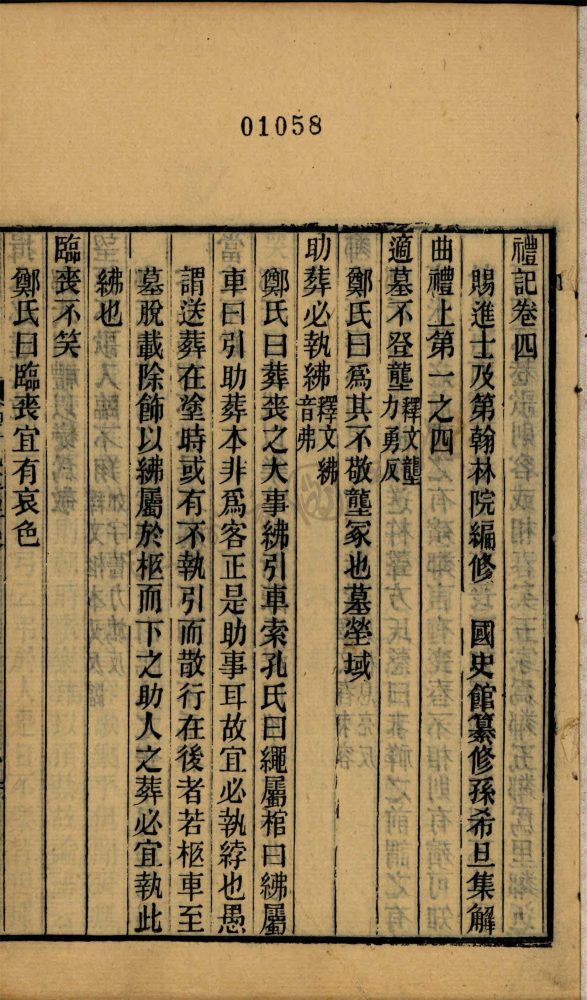 01058
禮記卷四
賜進士及第翰林院編修　國史館纂修孫希旦集解
曲禮上第一之四
適墓不登壟釋文壟力勇反
鄭氏曰爲其不敬壟冢也墓塋域
助葬必執紼釋文紼音弗
鄭氏曰葬喪之大事紼引車索孔氏曰繩屬棺曰紼屬
車曰引助葬本非爲客正是助事耳故宜必執紼也愚
謂送葬在塗時或有不執引而散行在後者若柩車至
墓脫載除飾以紼屬於柩而下之助人之葬必宜執此
紼也
臨喪不笑
鄭氏曰臨喪宜有哀色